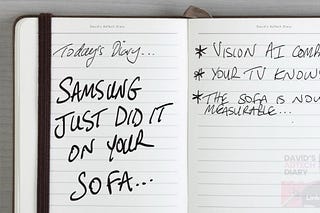 David's AdTech Diary
Today's Diary...
SAMSUNG
JUST DID IT
ON YOUR
SOFA...
David's AdTech Diary
* VISION AI COMP
* YOUR TV KNOWS
* THE SOFA IS NOW
MEASURABLE...
DAVID'S
ADTECH
DIARY
Link